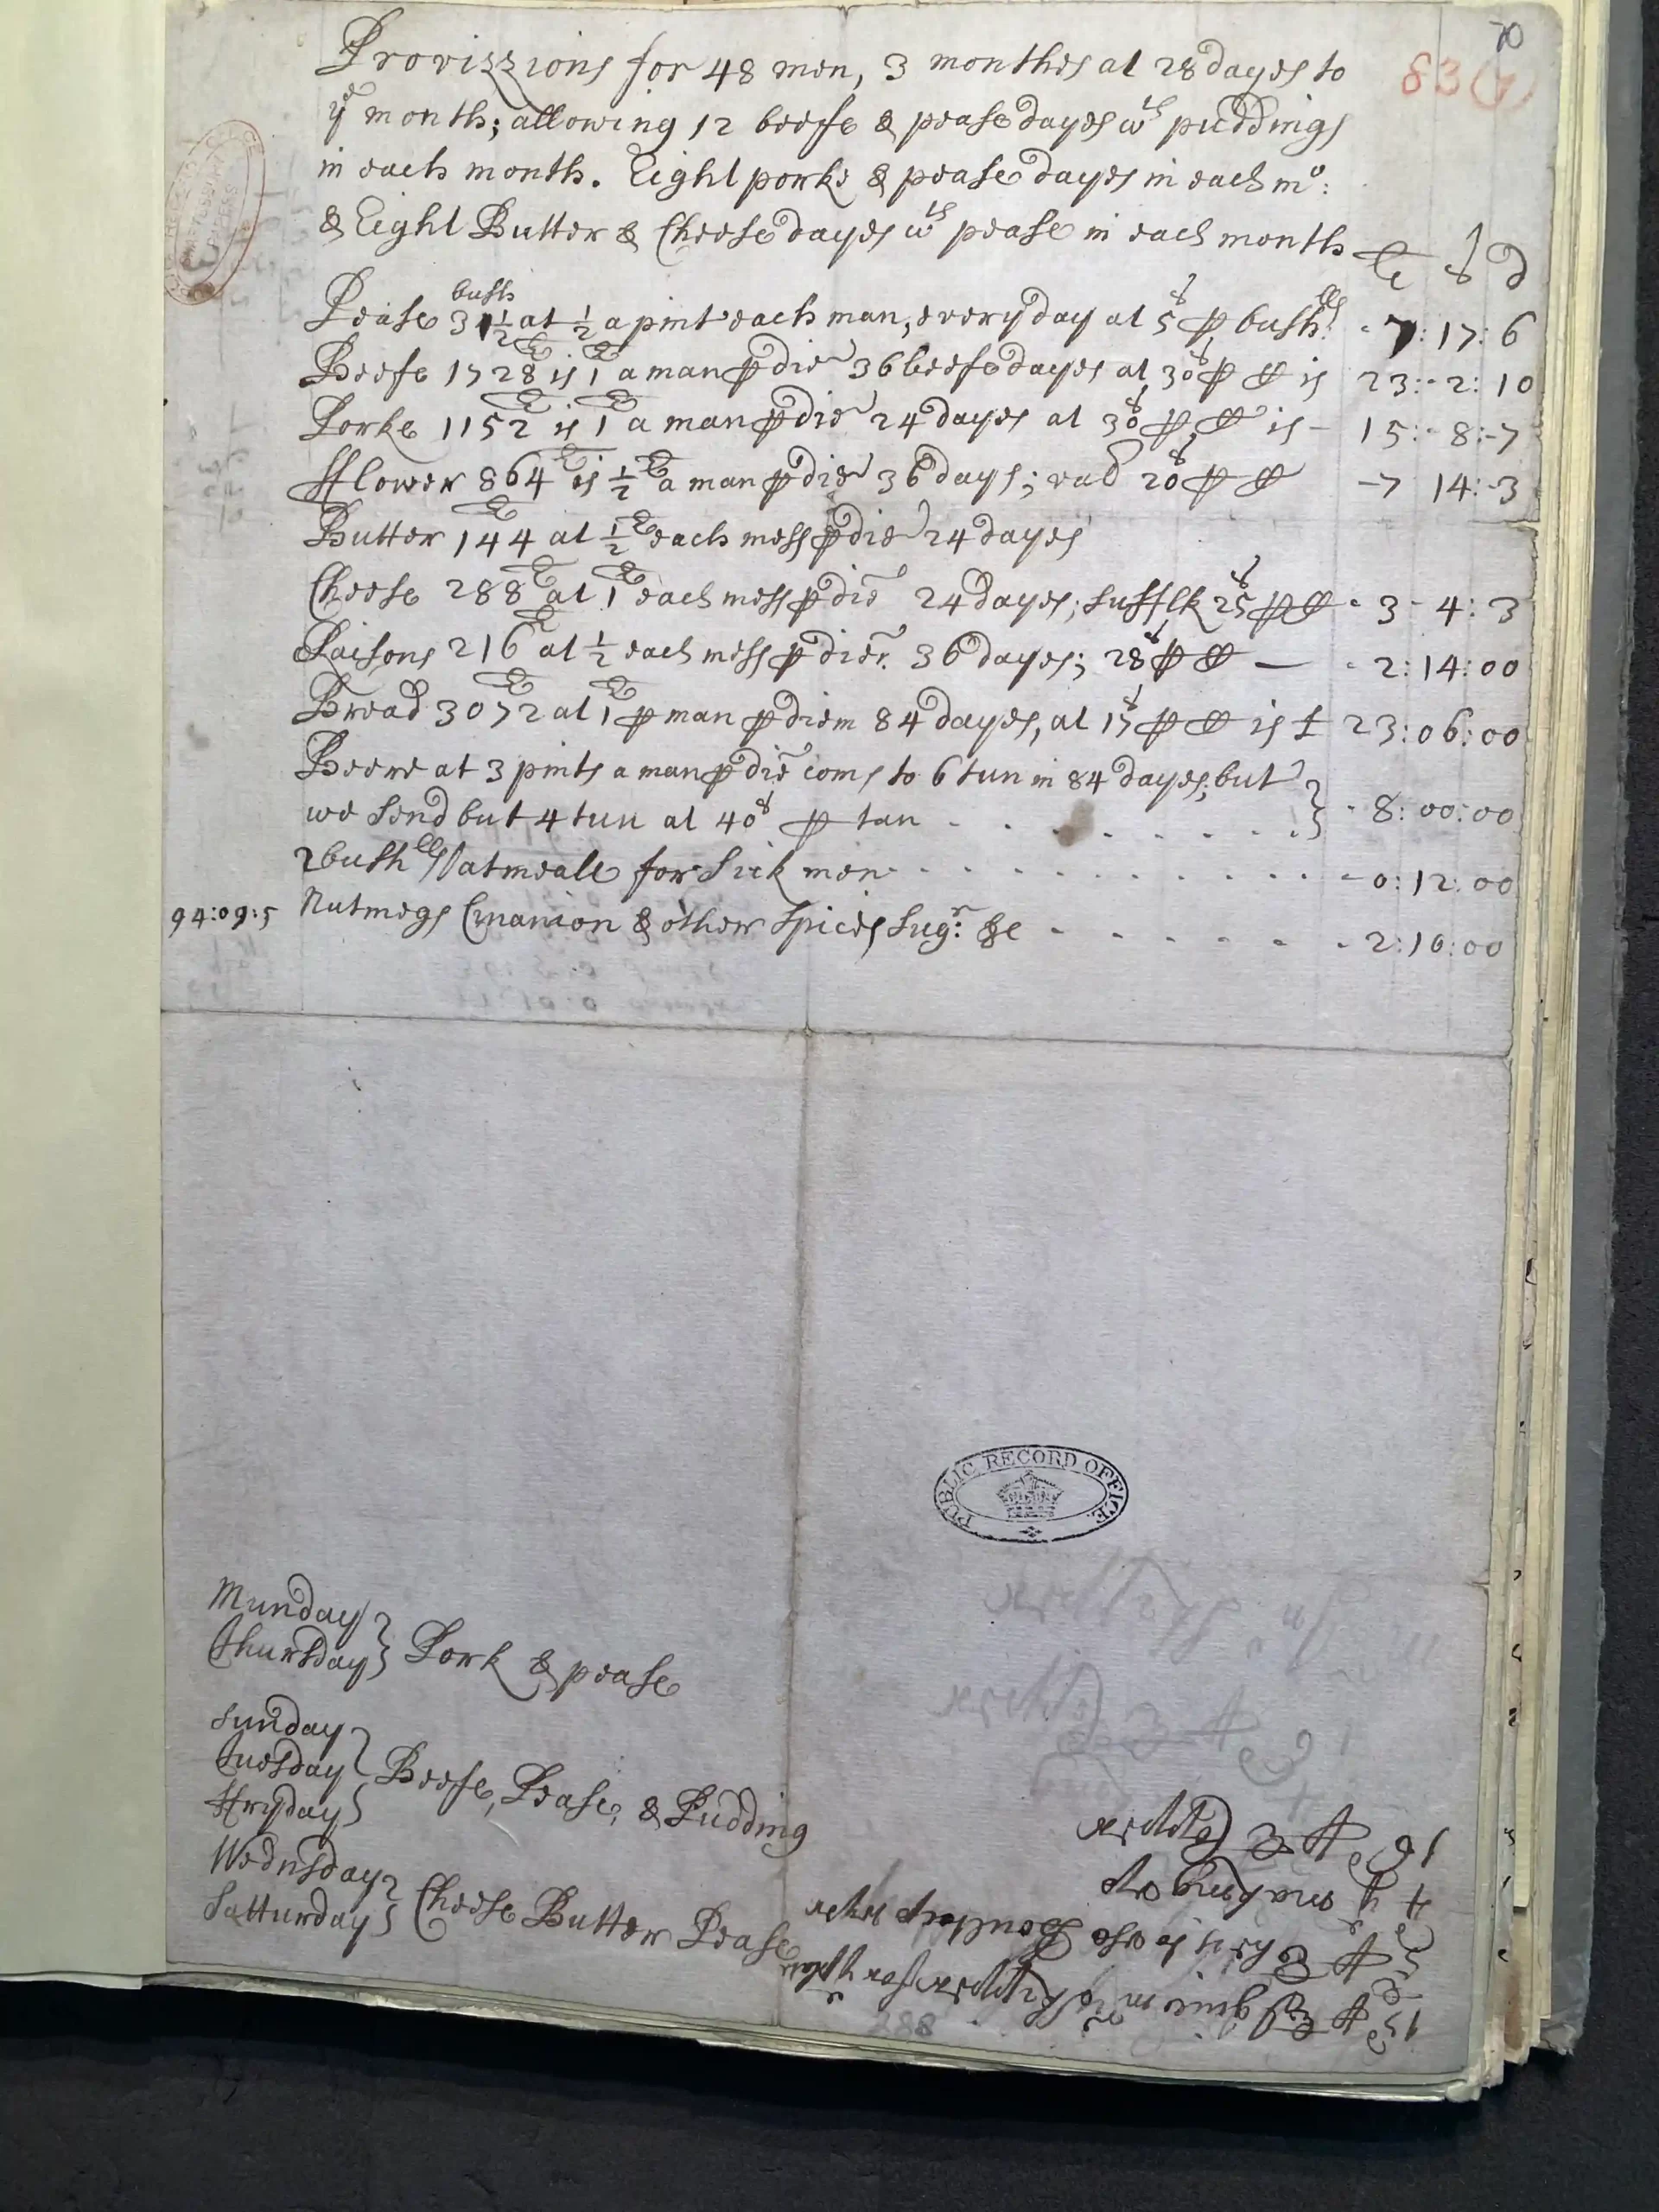 70
83 (1)
Provizzions for 48 men, 3 monthes at 28 dayes to
ye month; allowing 12 beefe & pease dayes wth puddings
in each month. Eight porke & pease dayes in each mo:
& Eight Butter & Cheese dayes wth pease in each month
£ s d
Pease 31½ bush at ½ a pint each man, every day at 5s ꝑ bushlls - 7:17:6
Beefe 1728 lb is 1 lb a man ꝑ die 36 beefe dayes at 30s ꝑ C is 23:-2:10
Porke 1152 lb is 1 lb a man ꝑ die 24 dayes at 30s ꝑ C is - 15:-8:-7
fflower 864 lb is ½ lb a man ꝑ die 36 days; rad 20s ꝑ C -7 14:-3
Butter 144 lb at ½ lb each mess ꝑ die 24 dayes
Cheese 288 lb at 1 lb each mess ꝑ die 24 dayes; sufflk 25s ꝑ C - 3 - 4:3
Raisons 216 lb at ½ each mess ꝑ diem 36 dayes; 28s ꝑ C — - 2:14:00
Bread 3072 lb at 1 lb ꝑ man ꝑ diem 84 dayes, at 17s ꝑ C is £ 23:06:00
Beere at 3 pints a man ꝑ die coms to 6 tun in 84 dayes; but
we send but 4 tun at 40s ꝑ tun - 8:00:00
2 bushlls Oatmeall for sick men - 0:12:00
94:09:5 Nutmegs Cinamon & other spices sugr: &c - 2:10:00
PUBLIC RECORD OFFICE
Munday
Thursday } Pork & pease
Sunday
Tuesday } Beefe, Pease, & Pudding
ffryday
Wednsday
Satturday } Cheese Butter Pease
16d ꝑ lb Copper